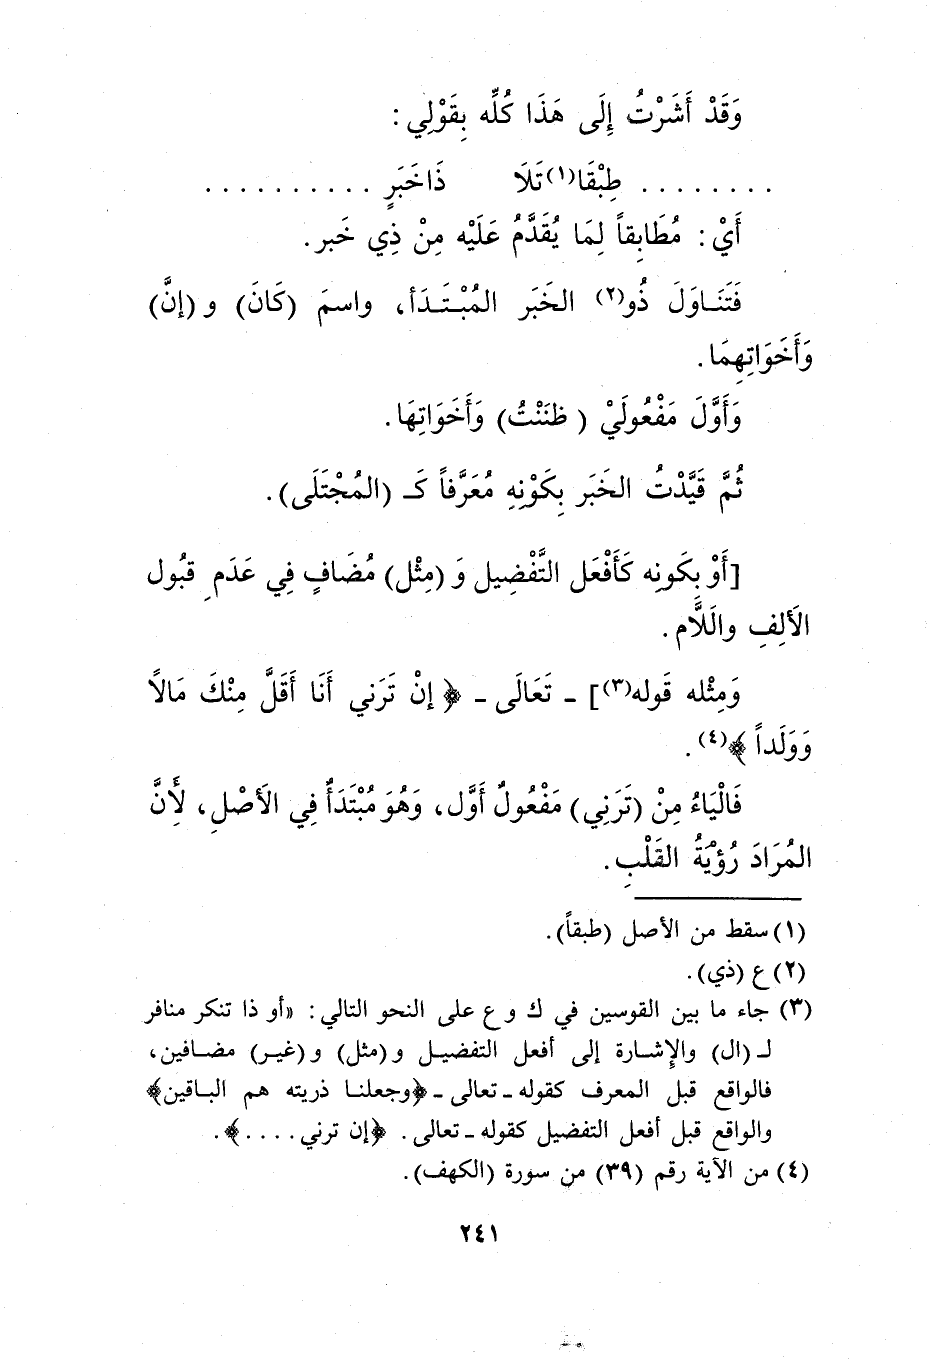 وَقَدْ أَشَرْتُ إِلَى هَذَا كُلِّه بِقَوْلِي :
. . . . . . . . طِبْقَا(١) تَلَا ذَا خَبَرٍ . . . . . . . . . .
أَيْ : مُطَابِقاً لِمَا يُقَدَّمُ عَلَيْه مِنْ ذِي خَبر .
فَتَنَـاوَلَ ذُو(٢) الخَبَر المُبْـتَـدَأ، واسمَ (كَانَ) و (إنَّ)
وَأَخَوَاتِهِمَا .
وَأَوَّلَ مَفْعُولَيْ ( ظنَنْتُ) وَأَخَوَاتِهَا .
ثُمَّ قَيَّدْتُ الخَبَر بِكَوْنِهِ مُعَرَّفاً كَـ (المُجْتَلَى) .
[أَوْ بِكَونِه كَأَفْعَل التَّفْضِيل وَ (مِثْل) مُضَافٍ فِي عَدَمِ قبُول
الأَلِفِ والَلَّام .
وَمِثْله قَوله(٣)] ـ تَعَالَى ـ ﴿ إنْ تَرَني أَنَا أَقَلَّ مِنْكَ مَالاً
وَوَلَداً ﴾(٤) .
فَالْيَاءُ مِنْ (تَرَنِي) مَفْعُولٌ أوَّل، وَهُوَ مُبْتَدَأٌ فِي الأَصْلِ، لِأَنَّ
المُرَادَ رُؤْيَةُ القَلْبِ .
(١) سقط من الأصل (طبقاً) .
(٢) ع (ذي) .
(٣) جاء ما بين القوسين في ك و ع على النحو التالي : «أو ذا تنكر منافر
لـ (ال) والإشـارة إلى أفعل التفضيـل و(مثل) و(غيـر) مضـافين،
فالواقع قبل المعرف كقوله ـ تعالى ـ ﴿وجعلنـا ذريته هم البـاقين﴾
والواقع قبل أفعل التفضيل كقوله ـ تعالى . ﴿إن ترني . . . .﴾ .
(٤) من الآية رقم (٣٩) من سورة (الكهف) .
٢٤١